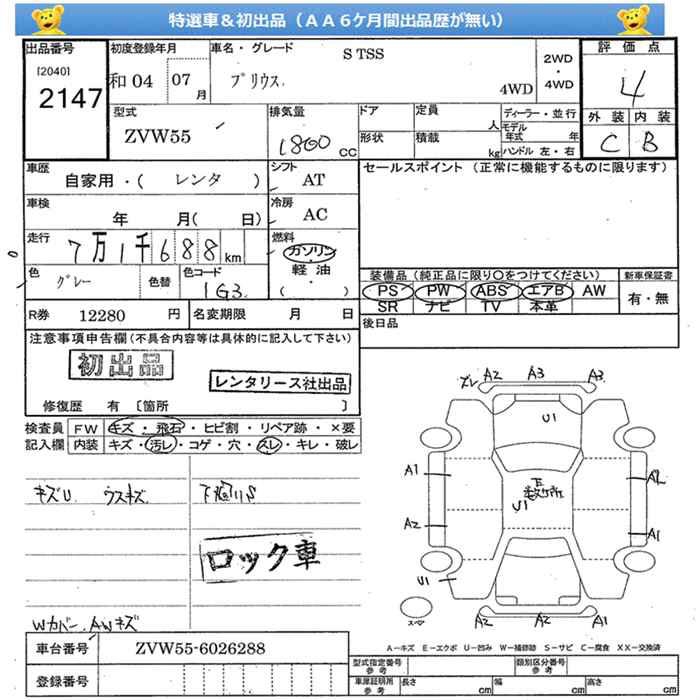 特選車＆初出品（ＡＡ６ケ月間出品歴が無い）
出品番号
[2040]
2147
初度登録年月
和04 07 月
車名・グレード
S TSS
プリウス
4WD
2WD
・
4WD
評価点
4
外装 内装
C B
型式
ZVW55
排気量
1800 CC
ドア
形状
定員
人
積載
kg
ディーラー・並行
モデル
年式 年
ハンドル 左・右
車歴
自家用・( レンタ )
シフト
AT
セールスポイント（正常に機能するものに限ります）
車検
年 月( 日)
冷房
AC
走行
7万1千688 km
燃料
ガソリン
・
軽油
( )
色
グレー
色替
色コード
1G3
装備品（純正品に限り〇をつけてください）
PS PW ABS エアB AW
SR ナビ TV 本革
新車保証書
有・無
R券 12280 円
名変期限 月 日
後日品
注意事項申告欄（不具合内容等は具体的に記入して下さい）
初出品
レンタリース社出品
修復歴 有 〔箇所 〕
検査員
記入欄
FW キズ・飛石・ヒビ割・リペア跡・×要
内装 キズ・汚レ・コゲ・穴・スレ・キレ・破レ
キズU ウスキズ
下廻りS
ロック車
Wカバー、AWキズ
ズレ A2 A3 A3
U1
A1
A2
U1
A2
A1
U1
スペア
A2 A2 A1
A－キズ E－エクボ U－凹み W－補修跡 S－サビ C－腐食 XX－交換済
車台番号 ZVW55-6026288
登録番号
型式指定番号
参考
類別区分番号
参考
車庫証明用
参考
長さ cm
幅 cm
高さ cm